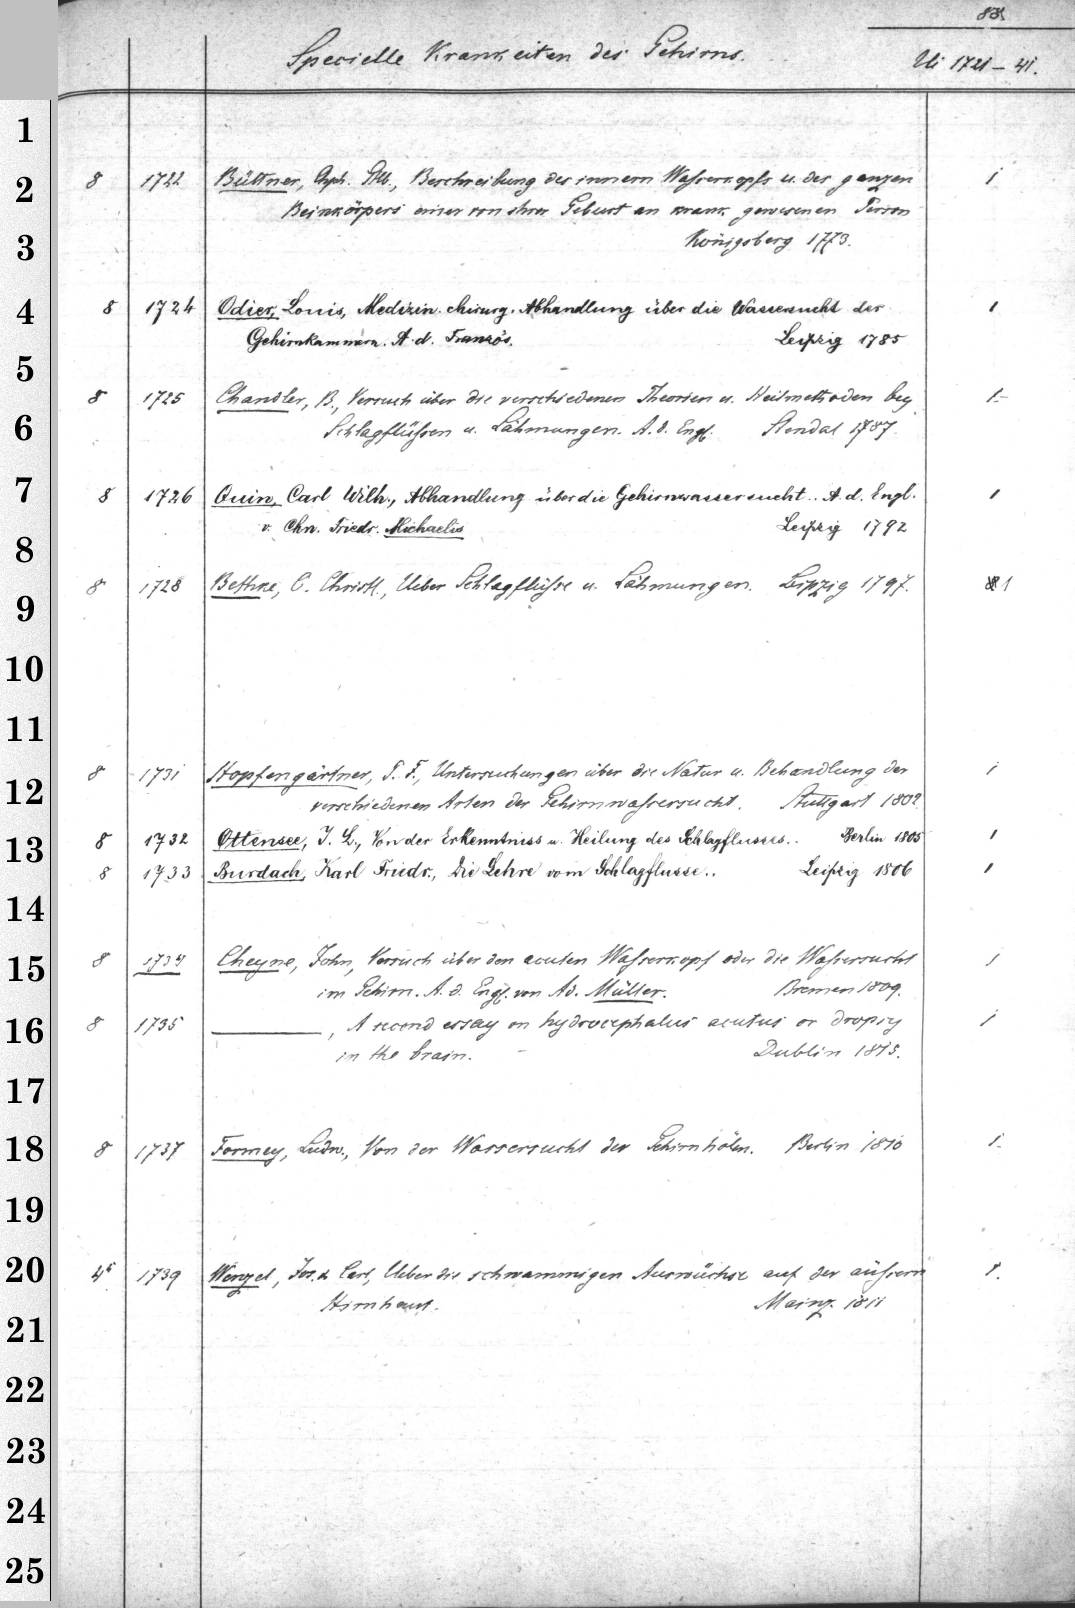 83
Specielle Krankeiten des Gehirns.
Ui 1721-41.
1
2
3
4
5
6
7
8
9
10
11
12
13
14
15
16
17
18
19
20
21
22
23
24
25
8 1722 Büttner, Chph. Glb., Beschreibung des innern Waßerkopfs u. des ganzen 1
Beinkörpers einer von ihrer Geburt an krank gewesenen Person
Königsberg 1773.
8 1724 Odier, Louis, Medizin. chirurg. Abhandlung über die Wassersucht der 1
Gehirnkammern. A. d. Französ. Leipzig 1785
8 1725 Chandler, B., Versuch über die verschiedenen Theorien u. Heilmethoden bey 1
Schlagflüßen u. Lähmungen. A. d. Engl. Stendal 1787.
8 1726 Quin, Carl Wilh., Abhandlung über die Gehirnwassersucht.. A. d. Engl. 1
v. Chn. Friedr. Michaelis Leipzig 1792
8 1728 Bethke, C. Christl., Ueber Schlagflüße u. Lähmungen. Leipzig 1797. 1
8 1731 Hopfengärtner, P. F., Untersuchungen über die Natur u. Behandlung der 1
verschiedenen Arten der Gehirnwaßersucht. Stuttgart 1802
8 1732 Ottensee, J. L., Von der Erkenntniss u. Heilung des Schlagflusses.. Berlin 1805 1
8 1733 Burdach, Karl Friedr., Die Lehre vom Schlagflusse.. Leipzig 1806 1
8 1734 Cheyne, John, Versuch über den acuten Waßerkopf oder die Waßersucht 1
im Gehirn. A. d. Engl. von Ad. Müller. Bremen 1809.
8 1735 ———, A second essay on hydrocephalus acutus or dropsy 1
in the brain. Dublin 1815.
8 1737 Formey, Ludw., Von der Wassersucht der Gehirnhölen. Berlin 1810 1
4° 1739 Wenzel, Jos. & Carl, Ueber die schwammigen Auswüchse auf der äußern 1.
Hirnhaut. Mainz. 1811